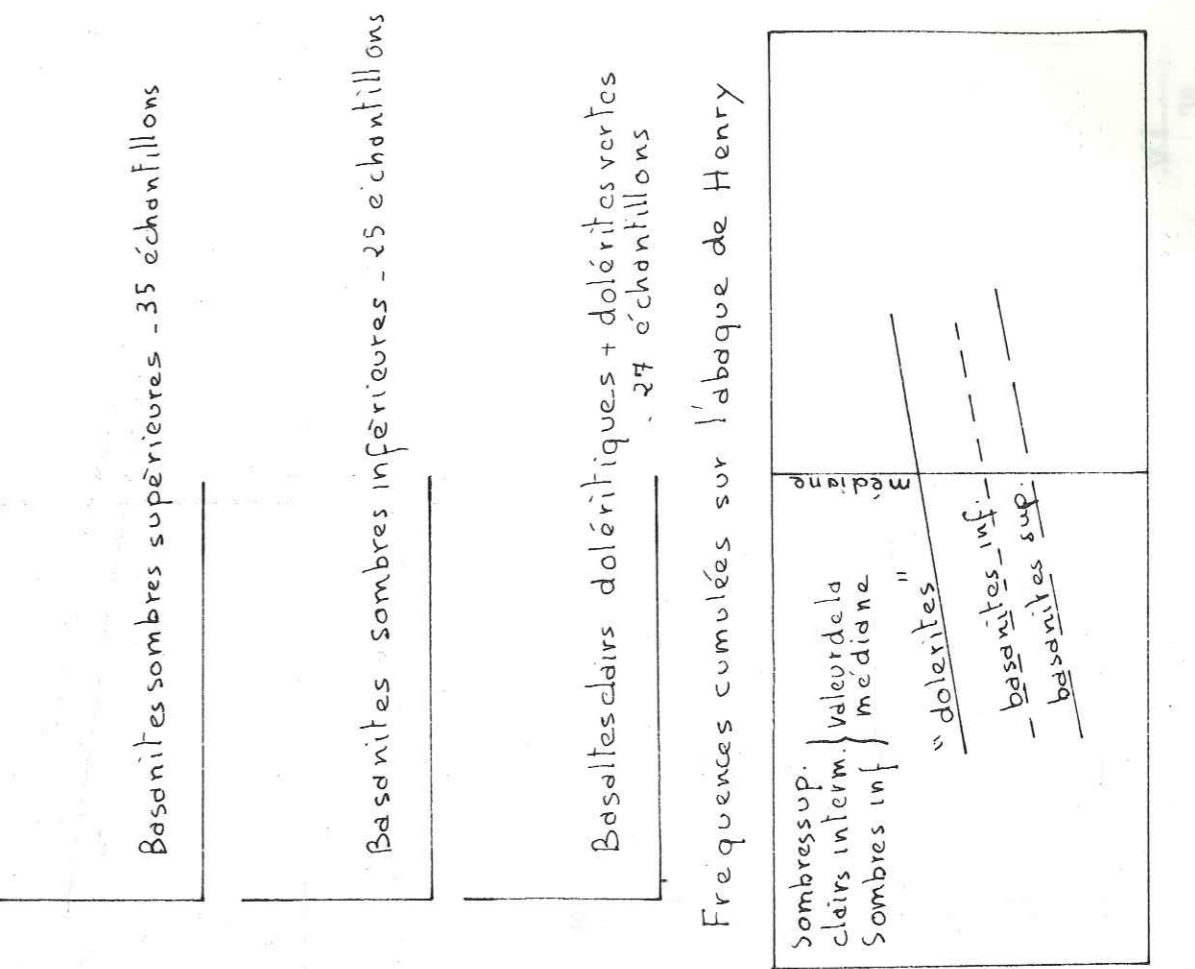 Basanites sombres supérieures - 35 échantillons
Basanites sombres inférieures - 25 échantillons
Basaltes clairs doléritiques + dolérites vertes
. 27 échantillons
Frequences cumulées sur l'abaque de Henry
Sombres sup.
clairs interm.
Sombres inf
} Valeur de la
médiane
médiane
"dolerites"
basanites inf.
basanites sup.